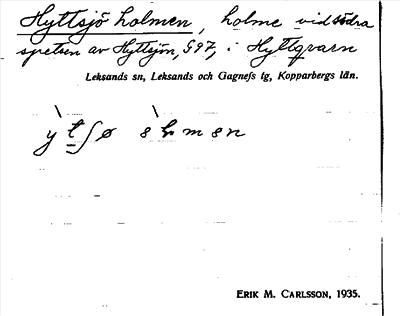 Hyttsjö holmen, holme vid södra
spetsen av Hyttsjön, S 97, i Hyttqvarn
Leksands sn, Leksands och Gagnefs tg, Kopparbergs län.
ERIK M. CARLSSON, 1935.